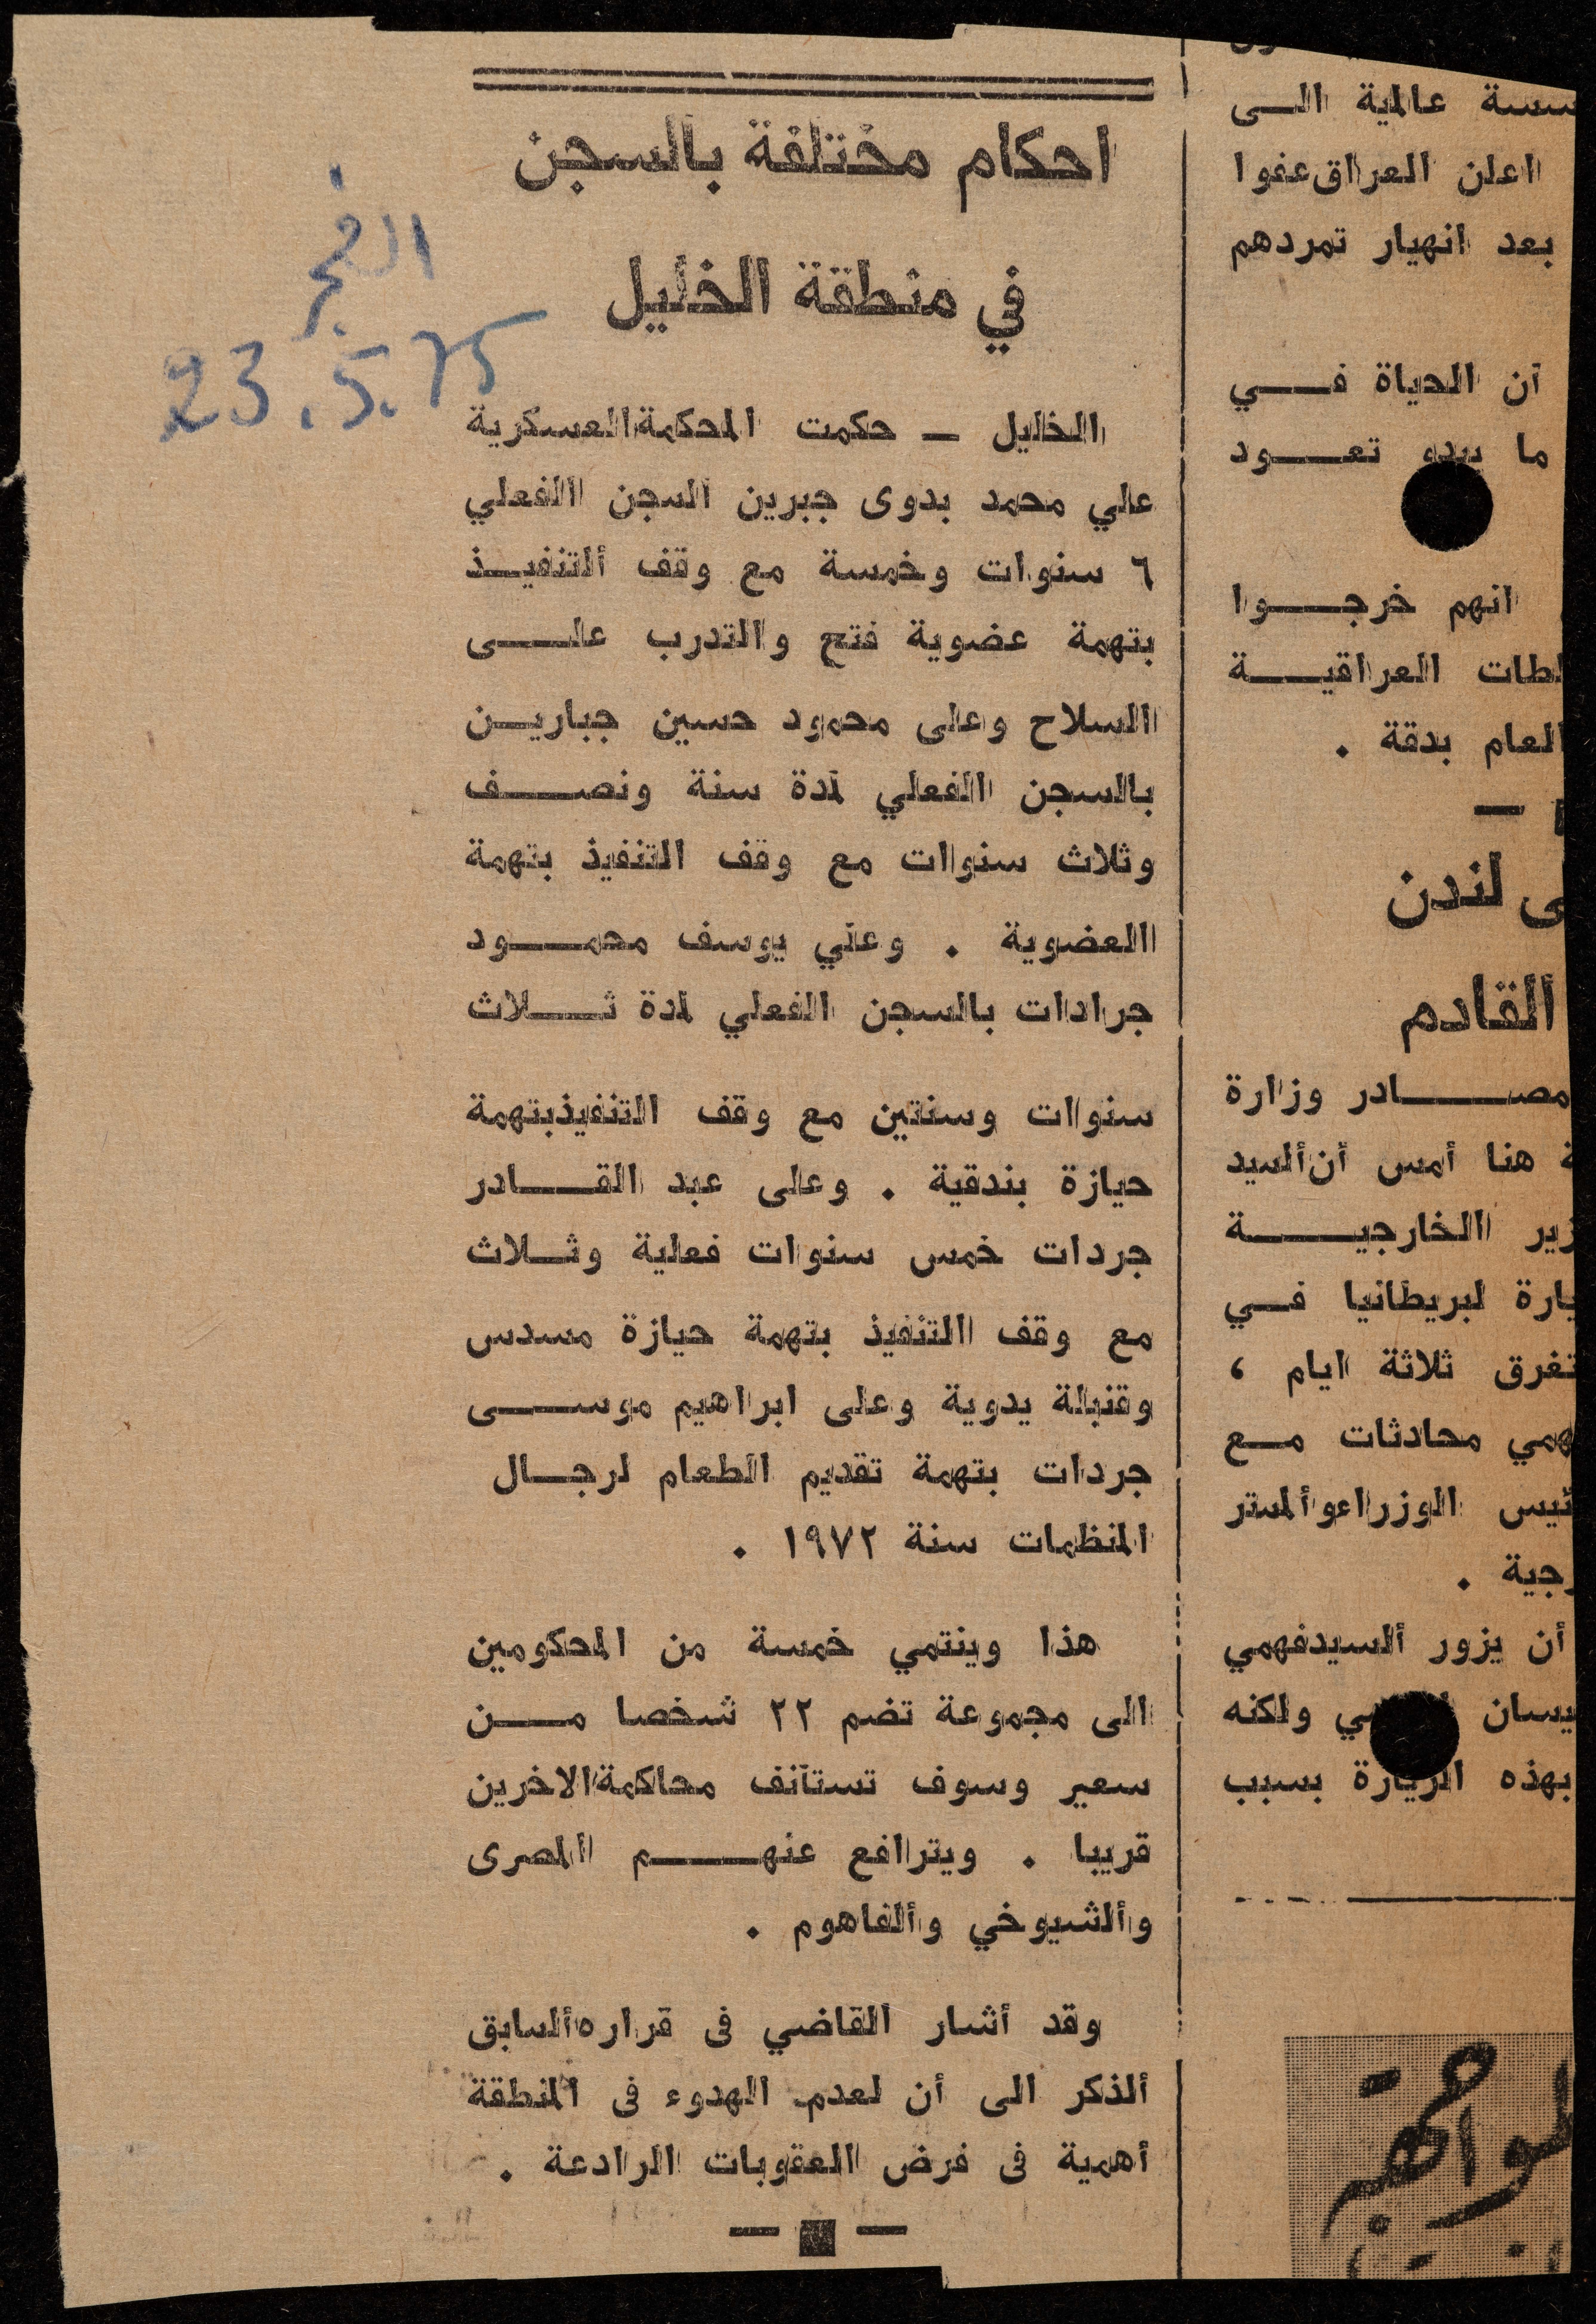 سسة عالمية الى
اعلن العراق عفوا
بعد انهيار تمردهم
ان الحياة في
ما يبدو تعود
انهم خرجوا
لطات العراقية
العام بدقة .
ى لندن
القادم
مصادر وزارة
ة هنا أمس أن السيد
زير الخارجية
يارة لبريطانيا في
تغرق ثلاثة ايام ،
همي محادثات مع
ئيس الوزراء والمستر
رجية .
أن يزور السيد فهمي
يسان ولكنه
بهذه الزيارة بسبب
احكام مختلفة بالسجن
في منطقة الخليل
الفجر
23.5.75
الخليل — حكمت المحكمة العسكرية
علي محمد بدوى جبرين السجن الفعلي
٦ سنوات وخمسة مع وقف التنفيذ
بتهمة عضوية فتح والتدرب على
السلاح وعلى محمود حسين جبارين
بالسجن الفعلي لمدة سنة ونصف
وثلاث سنوات مع وقف التنفيذ بتهمة
العضوية . وعلي يوسف محمود
جرادات بالسجن الفعلي لمدة ثلاث
سنوات وسنتين مع وقف التنفيذ بتهمة
حيازة بندقية . وعلى عبد القادر
جردات خمس سنوات فعلية وثلاث
مع وقف التنفيذ بتهمة حيازة مسدس
وقنبلة يدوية وعلى ابراهيم موسى
جردات بتهمة تقديم الطعام لرجال
المنظمات سنة ١٩٧٢ .
هذا وينتمي خمسة من المحكومين
الى مجموعة تضم ٢٢ شخصا من
سعير وسوف تستانف محاكمة الاخرين
قريبا . ويترافع عنهم المصرى
والشيوخي والفاهوم .
وقد أشار القاضي فى قراره السابق
الذكر الى أن لعدم الهدوء فى المنطقة
أهمية فى فرض العقوبات الرادعة .